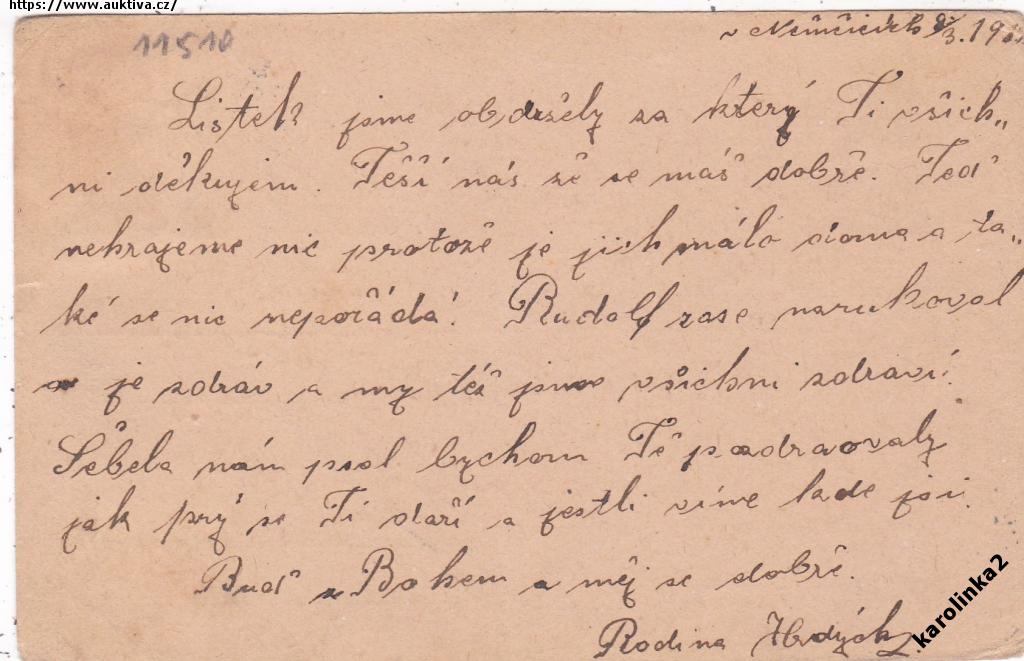 https://www.auktiva.cz/
11510
v Němčicích 8/3. 19
Listek jsme obdrželý za který Ti všich„
ni děkujem. Těší nás že se máš dobře. Teď
nehrajeme nic protože je jich málo doma a ta„
ké se nic nepořádá. Rudolf zase narukoval
a je zdráv a my též jsme všichni zdraví.
Šebela nám psal bychom Tě pozdravovaly
jak prý se Ti daří a jestli víme kde jsi.
Buď s Bohem a měj se dobře.
Rodina
karolinka2